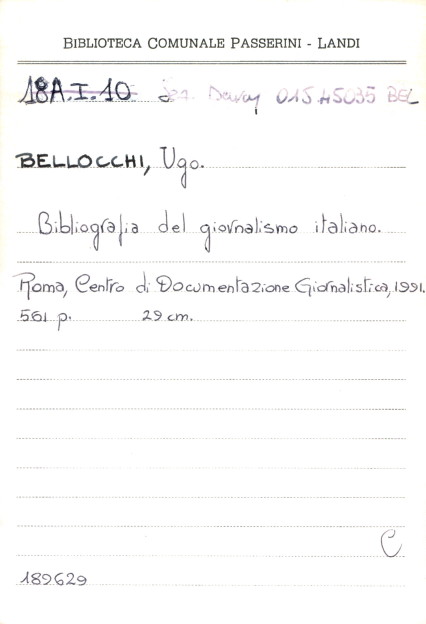 BIBLIOTECA COMUNALE PASSERINI - LANDI
18A.I.10. Dewey 015.45035 BEL
BELLOCCHI, Ugo.
Bibliografia del giornalismo italiano.
Roma, Centro di Documentazione Giornalistica, 1991.
561 p. 29 cm.
C
189629